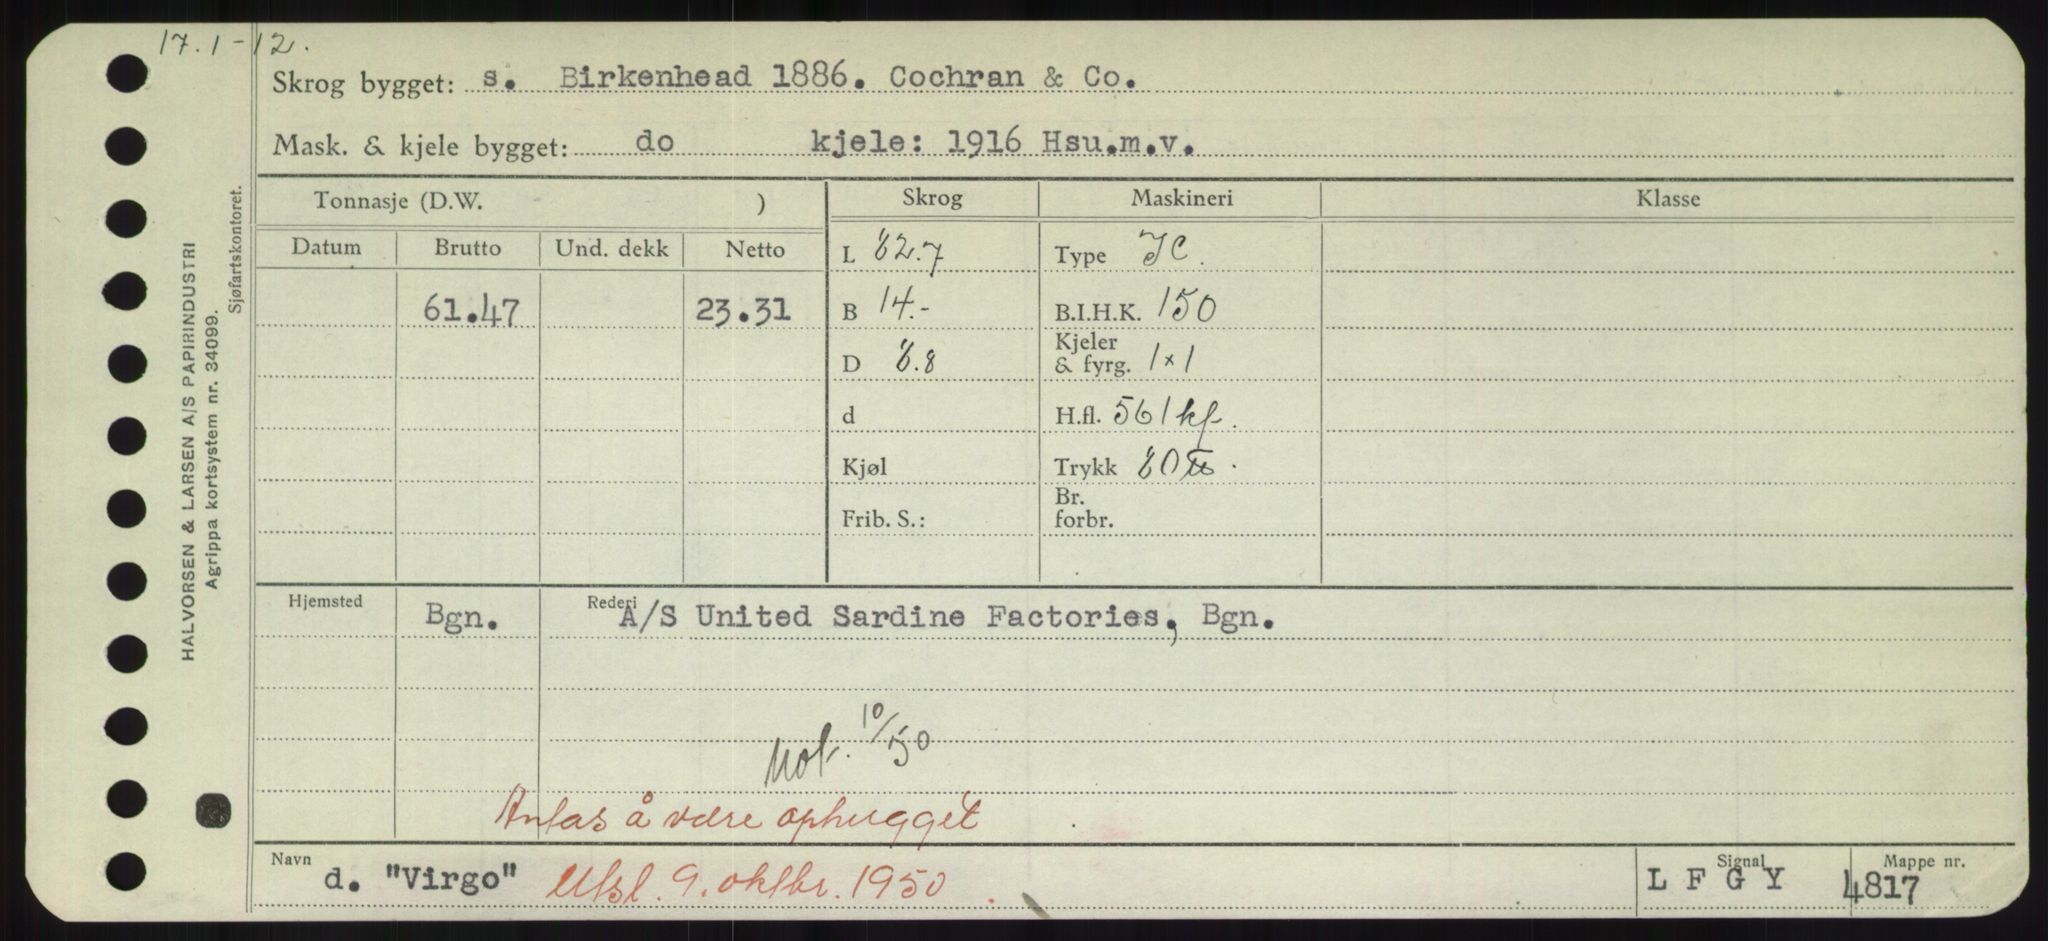 17.1-12.
Skrog bygget: s. Birkenhead 1886. Cochran & Co.
Mask. & kjele bygget: do kjele: 1916 Hsu.m.v.
Tonnasje (D.W. ) Skrog Maskineri Klasse
Datum Brutto Und. dekk Netto L 82.7 Type
61.47 23.31 B 14.- B.I.H.K. 150
D 8.8 Kjeler & fyrg. 1x1
d H.fl. 561 kf.
Kjøl Trykk 80 ℔.
Frib. S.: Br. forbr.
Hjemsted Bgn. Rederi A/S United Sardine Factories, Bgn.
10/50
Antas å være ophugget
Navn d. "Virgo" Utsl. 9. oktbr. 1950. Signal L F G Y Mappe nr. 4817
HALVORSEN & LARSEN A/S PAPIRINDUSTRI
Agrippa kortsystem nr. 34099.
Sjøfartskontoret.